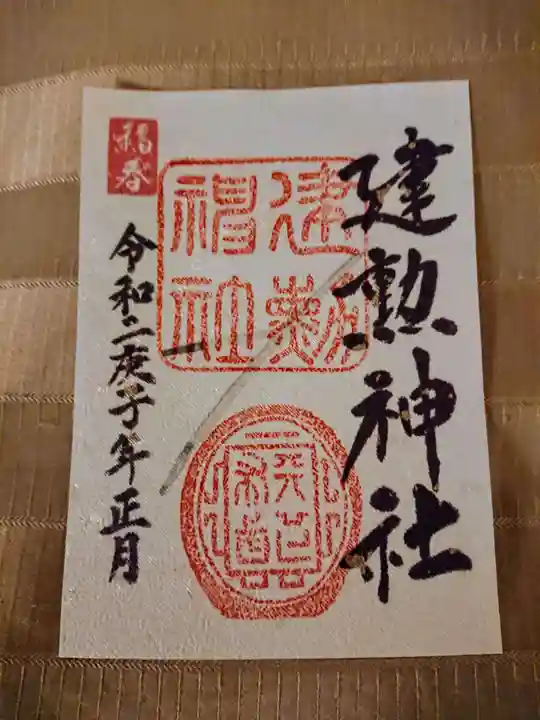 建勲神社
建勲
神社
福春
令和二庚子年正月